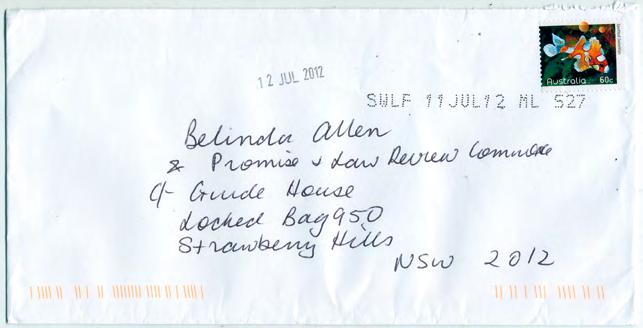 Australia 60c
12 JUL 2012
SWLF 11JUL12 ML 527
Belinda Allen
& Promise & Law Review
C/- Guide House
Locked Bag 950
Strawberry Hills
NSW 2012